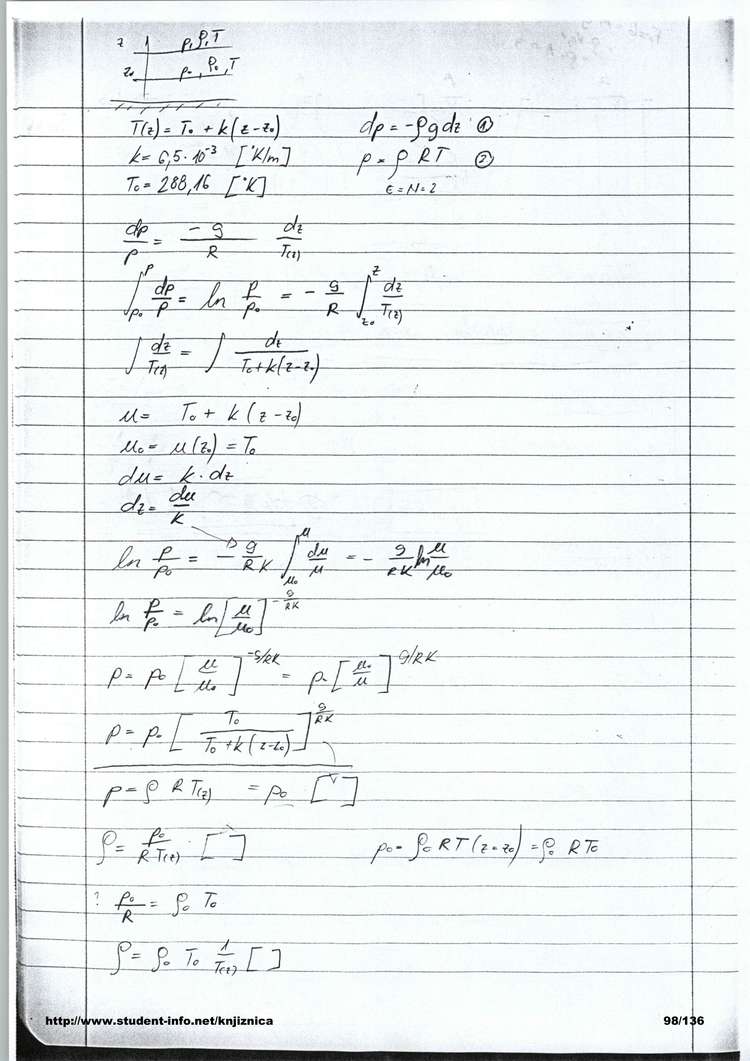 z p, ρ, T
z₀ p₀, ρ₀, T
T(z) = T₀ + k(z-z₀) dp = -ρg dz ①
k = 6,5·10⁻³ [°K/m] p = ρ RT ②
T₀ = 288,16 [°K] ε = N = 2
dp/p = -g/R dz/T(z)
∫_{p₀}^{p} dp/p = ln p/p₀ = - g/R ∫_{z₀}^{z} dz/T(z)
∫ dz/T(z) = ∫ dz/(T₀+k(z-z₀))
u = T₀ + k(z-z₀)
u₀ = u(z₀) = T₀
du = k·dz
dz = du/k
ln p/p₀ = - g/RK ∫_{u₀}^{u} du/u = - g/RK ln u/u₀
ln p/p₀ = ln[u/u₀]^{-g/RK}
p = p₀ [u/u₀]^{-g/RK} = p₀ [u₀/u]^{g/RK}
p = p₀ [T₀/(T₀+k(z-z₀))]^{g/RK}
p = ρ R T(z) = p₀ [ ]
ρ = p₀/(R T(z)) [ ] p₀ = ρ₀ RT(z=z₀) = ρ₀ RT₀
? p₀/R = ρ₀ T₀
ρ = ρ₀ T₀ 1/T(z) [ ]
http://www.student-info.net/knjiznica 98/136